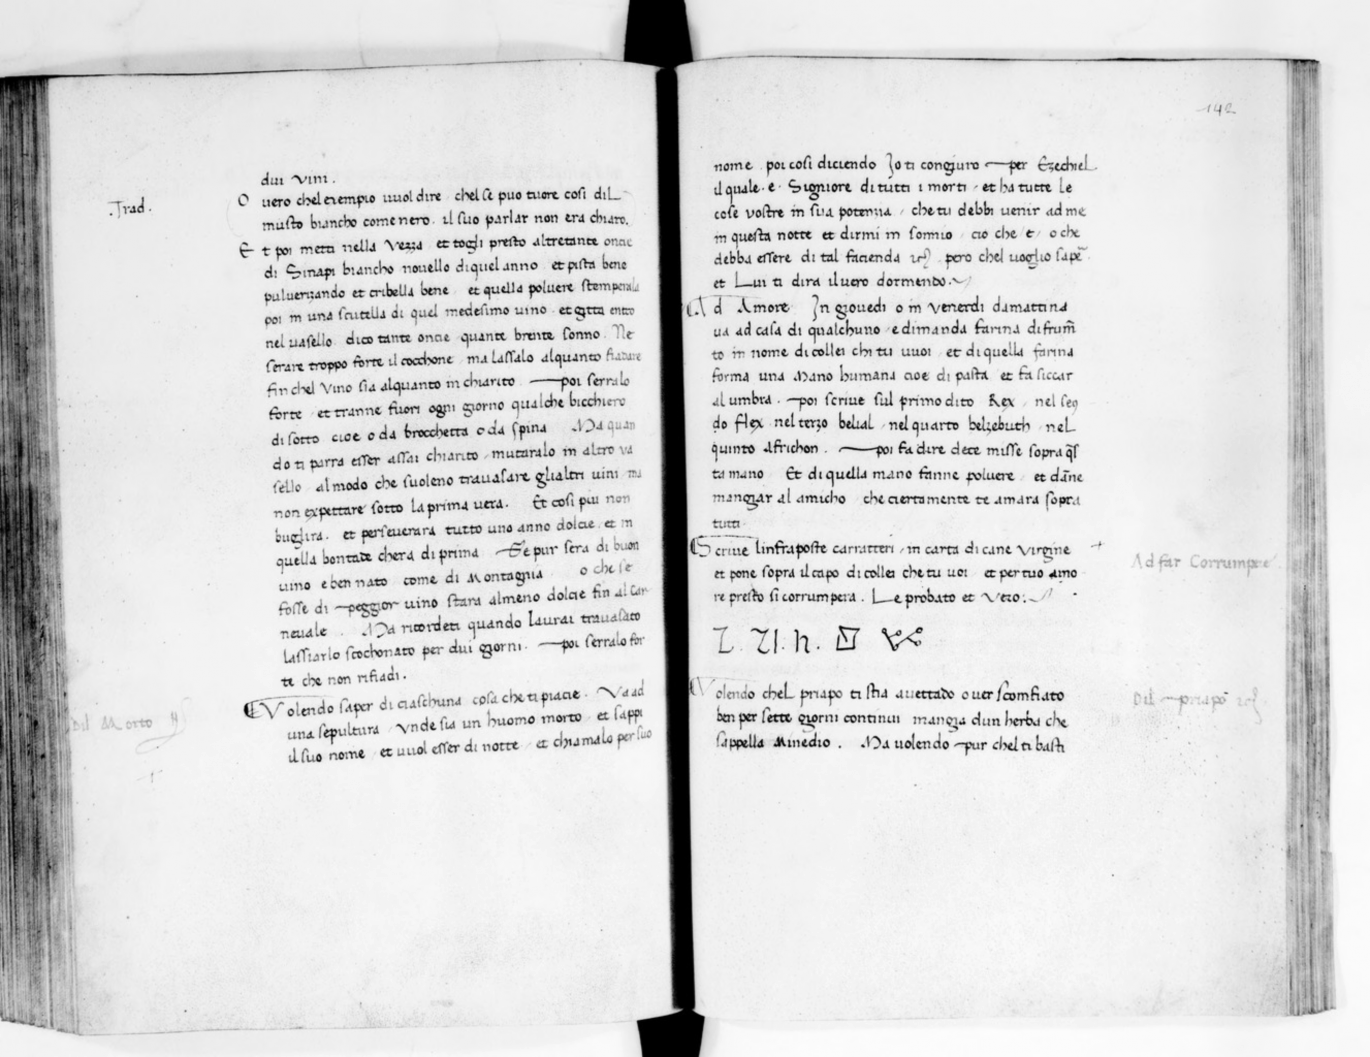 dui vini.
.Trad.
O vero chel exempio vuol dire, chel se puo tuore cosi dil
musto biancho come nero. il suo parlar non era chiaro.
E t poi metti nella vezza, et togli presto altretante oncie
di Sinapi biancho novello di quel anno, et pista bene
pulverizando et cribella bene, et quella polvere stemperala
poi in una scutella di quel medesimo vino, et gitta entro
nel vasello. dico tante oncie quante brente sonno. Ne
serare troppo forte il cocchone, ma lassalo alquanto fiatare
fin chel vino sia alquanto in chiarito. poi serralo
forte, et tranne fuori ogni giorno qualche bicchiero
di sotto cioe o da brocchetta o da spina. Ma quan
do ti parra esser assai chiarito, mutaralo in altro va
sello, al modo che suoleno travasare gli altri vini, ma
non expettare sotto la prima vera. Et cosi piu non
buglira. et perseverara tutto uno anno dolcie, et in
quella bontade chera di prima. Se pur sera di buon
vino e ben nato, come di Montagnia. o che se
fosse di peggior vino stara almeno dolcie fin al Car
nevale. Ma ricordeti quando l aurai travasato
lassiarlo scochonato per dui giorni. poi serralo for
te che non rifiadi.
V olendo saper di ciaschuna cosa che ti piacie. Va ad
una sepultura, vnde sia un huomo morto, et sappi
il suo nome, et vuol esser di notte, et chiamalo per suo
Dil Morto
142
nome. poi cosi diciendo Jo ti congiuro per Ezechiel
il quale. e. Signiore di tutti i morti, et ha tutte le
cose vostre in sua potenzia, che tu debbi venir ad me
in questa notte et dirmi in sonnio, cio che e, o che
debba essere di tal facienda. pero chel voglio saper
et Lui ti dira il vero dormendo.
A d Amore. Jn giovedi o in venerdi da mattina
va ad casa di qualchuno, e dimanda farina di frum̄
to in nome di collei chi tu vuoi, et di quella farina
forma una Mano humana cioe di pasta, et fa siccar
al umbra. poi scrive sul primo dito Rex, nel seg
do flex, nel terzo belial, nel quarto belzebuth, nel
quinto Africhon. poi fa dire dece misse sopra q̄s
ta mano. Et di quella mano fanne polvere, et dāne
mangiar al amicho, che ciertamente te amara sopra
tutti.
S crive l infraposte carratteri, in carta di cane virgine
et pone sopra il capo di collei che tu voi, et per tuo amo
re presto si corrumpera. Le probato et vero.
Ad far Corrumpere
V olendo chel priapo ti stia avettado over sconfiato
ben per sette giorni continui mangia d un herba che
sappella Minedio. Ma volendo pur chel ti basti
Dil priapo